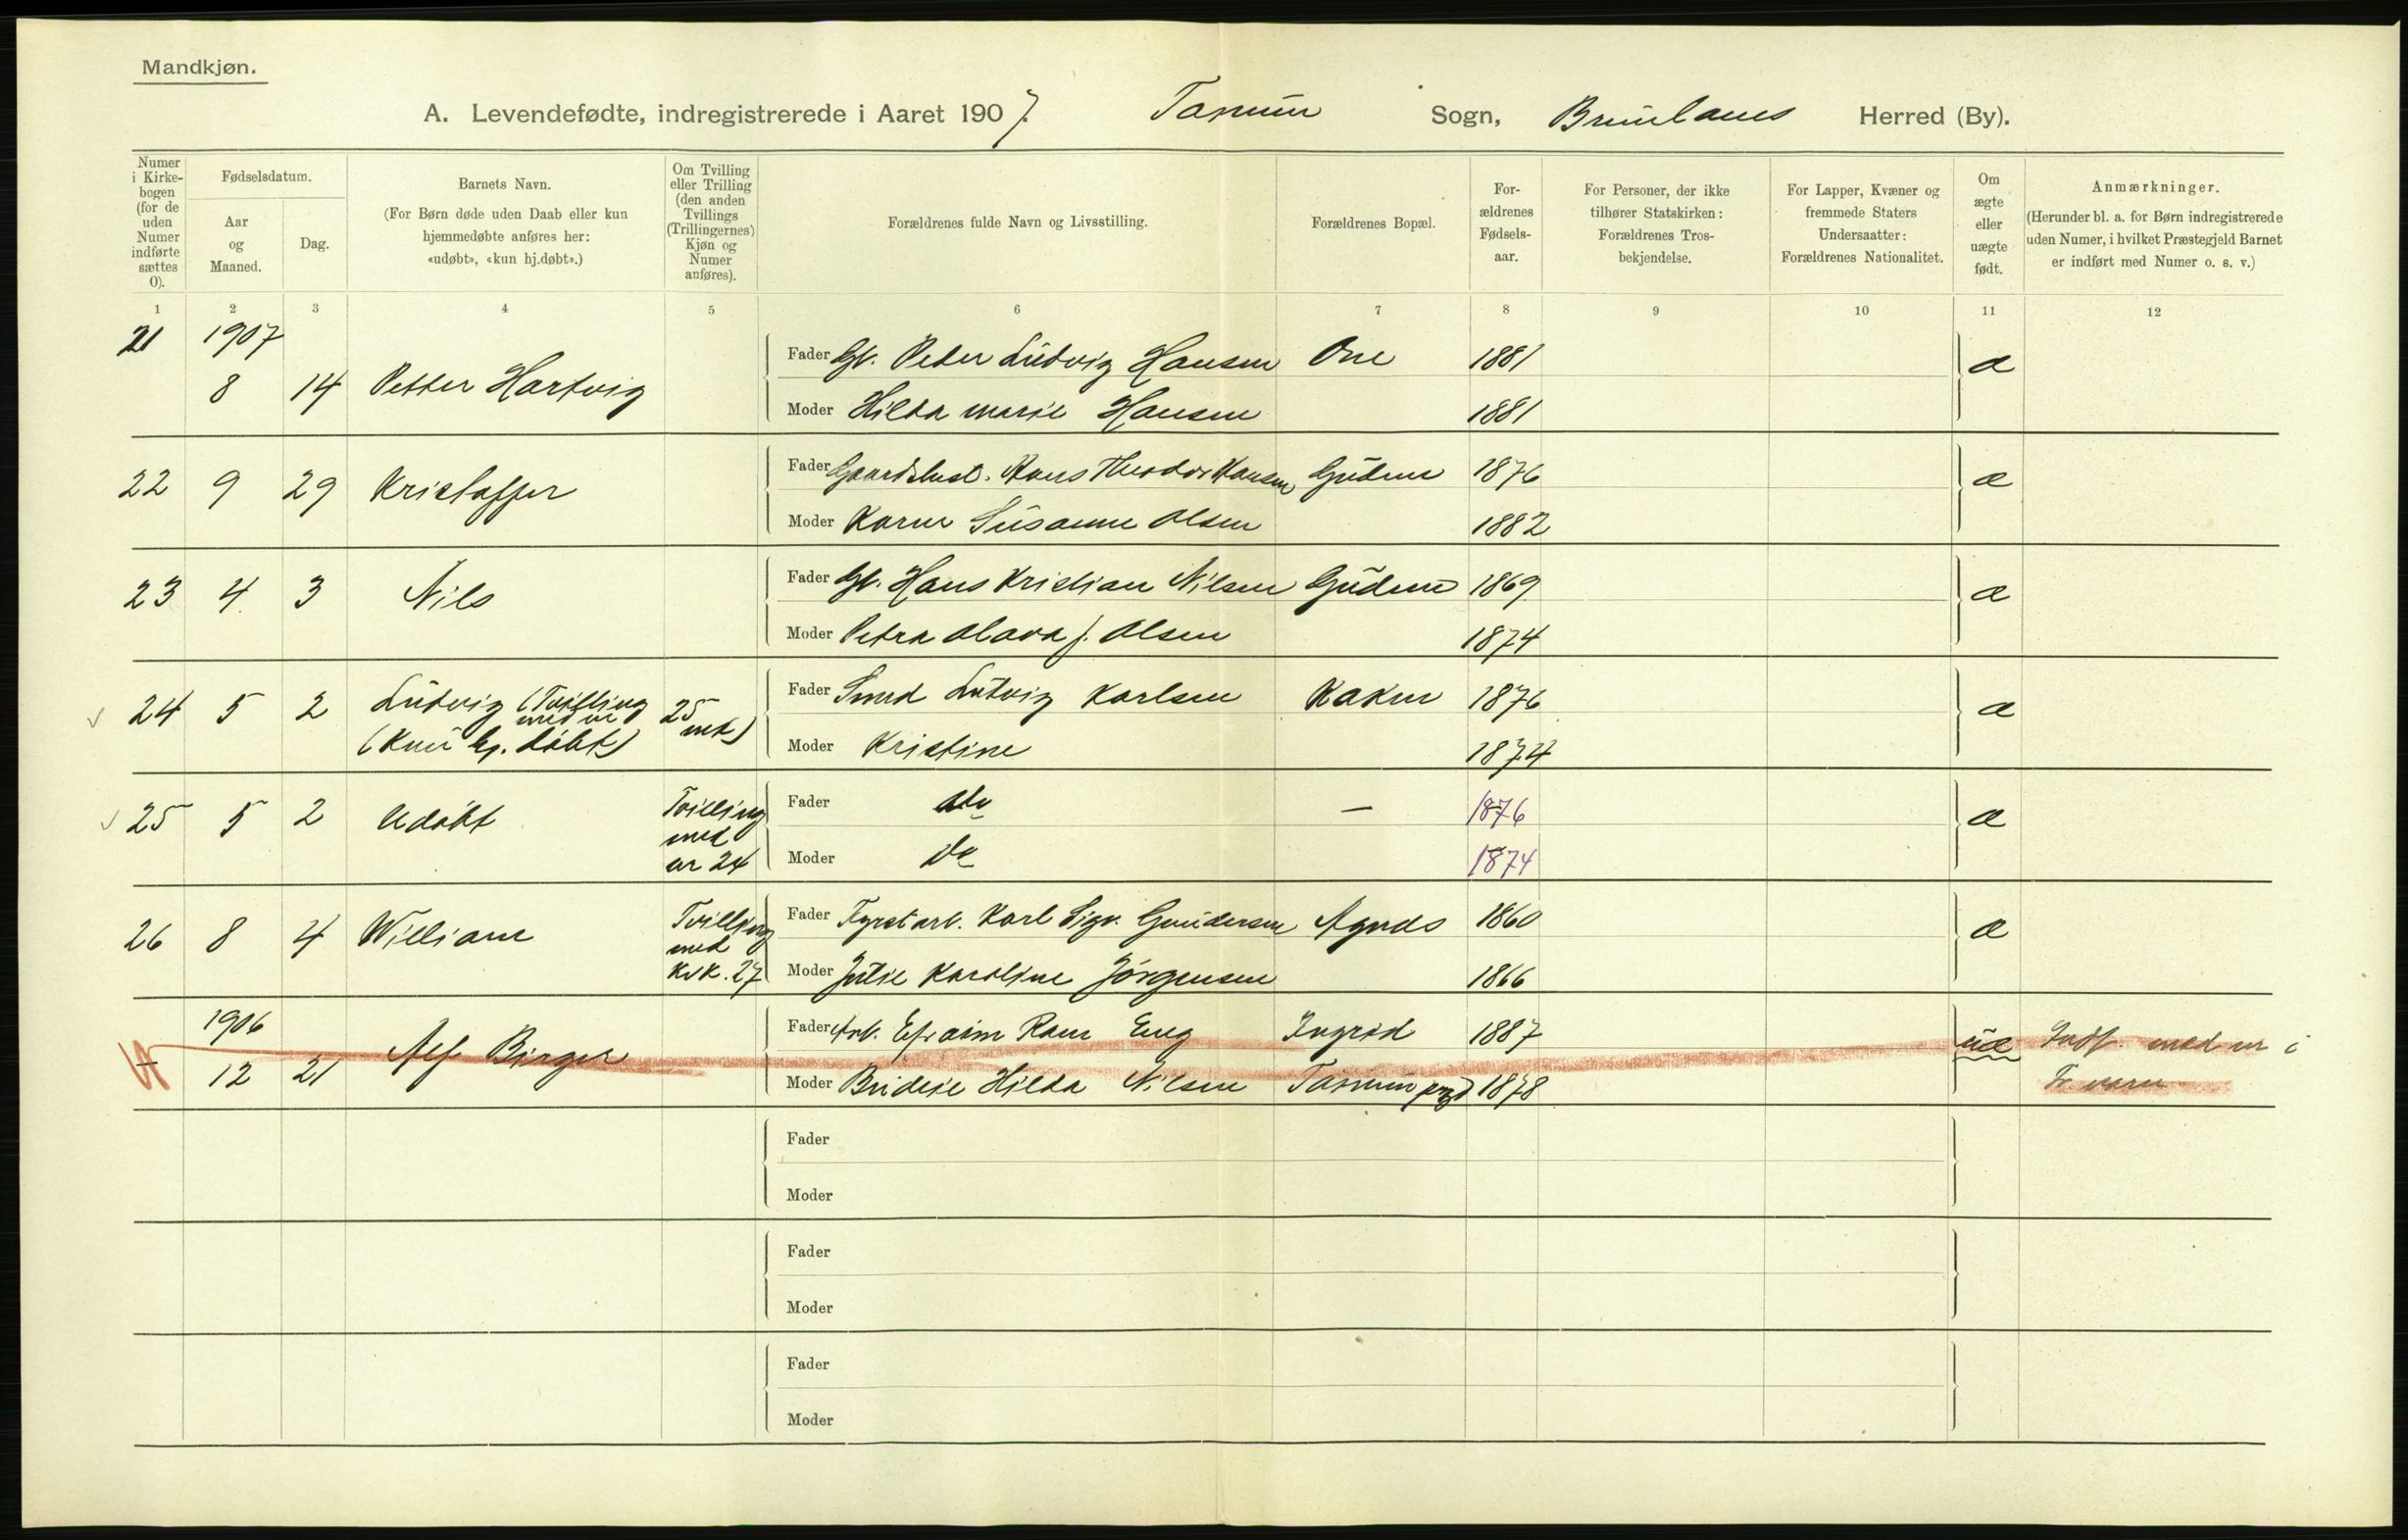 Mandkjøn.
A. Levendefødte, indregistrerede i Aaret 1907. Tanum Sogn, Brunlanes Herred (By).
Numer i Kirkebogen (for de uden Numer indførte sættes 0).
Fødselsdatum.
Aar og Maaned.
Dag.
Barnets Navn.
(For Børn døde uden Daab eller kun hjemmedøbte anføres her: «udøbt», «kun hj.døbt».)
Om Tvilling eller Trilling (den anden Tvillings (Trillingernes) Kjøn og Numer anføres).
Forældrenes fulde Navn og Livsstilling.
Forældrenes Bopæl.
For-
ældrenes
Fødsels-
aar.
For Personer, der ikke
tilhører Statskirken:
Forældrenes Tros-
bekjendelse.
For Lapper, Kvæner og
fremmede Staters
Undersaatter:
Forældrenes Nationalitet.
Om
ægte
eller
uægte
født.
Anmærkninger.
(Herunder bl. a. for Børn indregistrerede
uden Numer, i hvilket Præstegjeld Barnet
er indført med Numer o. s. v.)
1 2 3 4 5 6 7 8 9 10 11 12
21 1907 8 14 Petter Hartvig
Fader Gb. Peter Ludvig Hansen One 1881 æ
Moder Hilda Marie Hansen 1881
22 9 29 Kristoffer
Fader Hans Theodor Hansen Gudem 1876 æ
Moder Karen Susanne Olsen 1882
23 4 3 Nils
Fader Gb. Hans Kristian Nilsen Gudem 1869 æ
Moder Petra Olava f. Olsen 1874
24 5 2 Ludvig (Tvilling med nr 25 mk)
(Kun hj. døbt)
Fader Smed Ludvig Karlsen Kaken 1876 æ
Moder Kristine 1874
25 5 2 Udøbt Tvilling med nr 24
Fader do — 1876 æ
Moder do 1874
26 8 4 William Tvilling med kvk. 27
Fader Fyrstarb. Karl Sigv. Gundersen Agnes 1860 æ
Moder Julie Karoline Jörgensen 1866
– 1906 12 21 Alf Birger
Fader Arb. Efraim Ram Eng Ingrid 1887 uæ Indf. med nr i
Moder Budeie Hilda Nilsen Tanum prgd 1878 Fr.værn
Fader
Moder
Fader
Moder
Fader
Moder